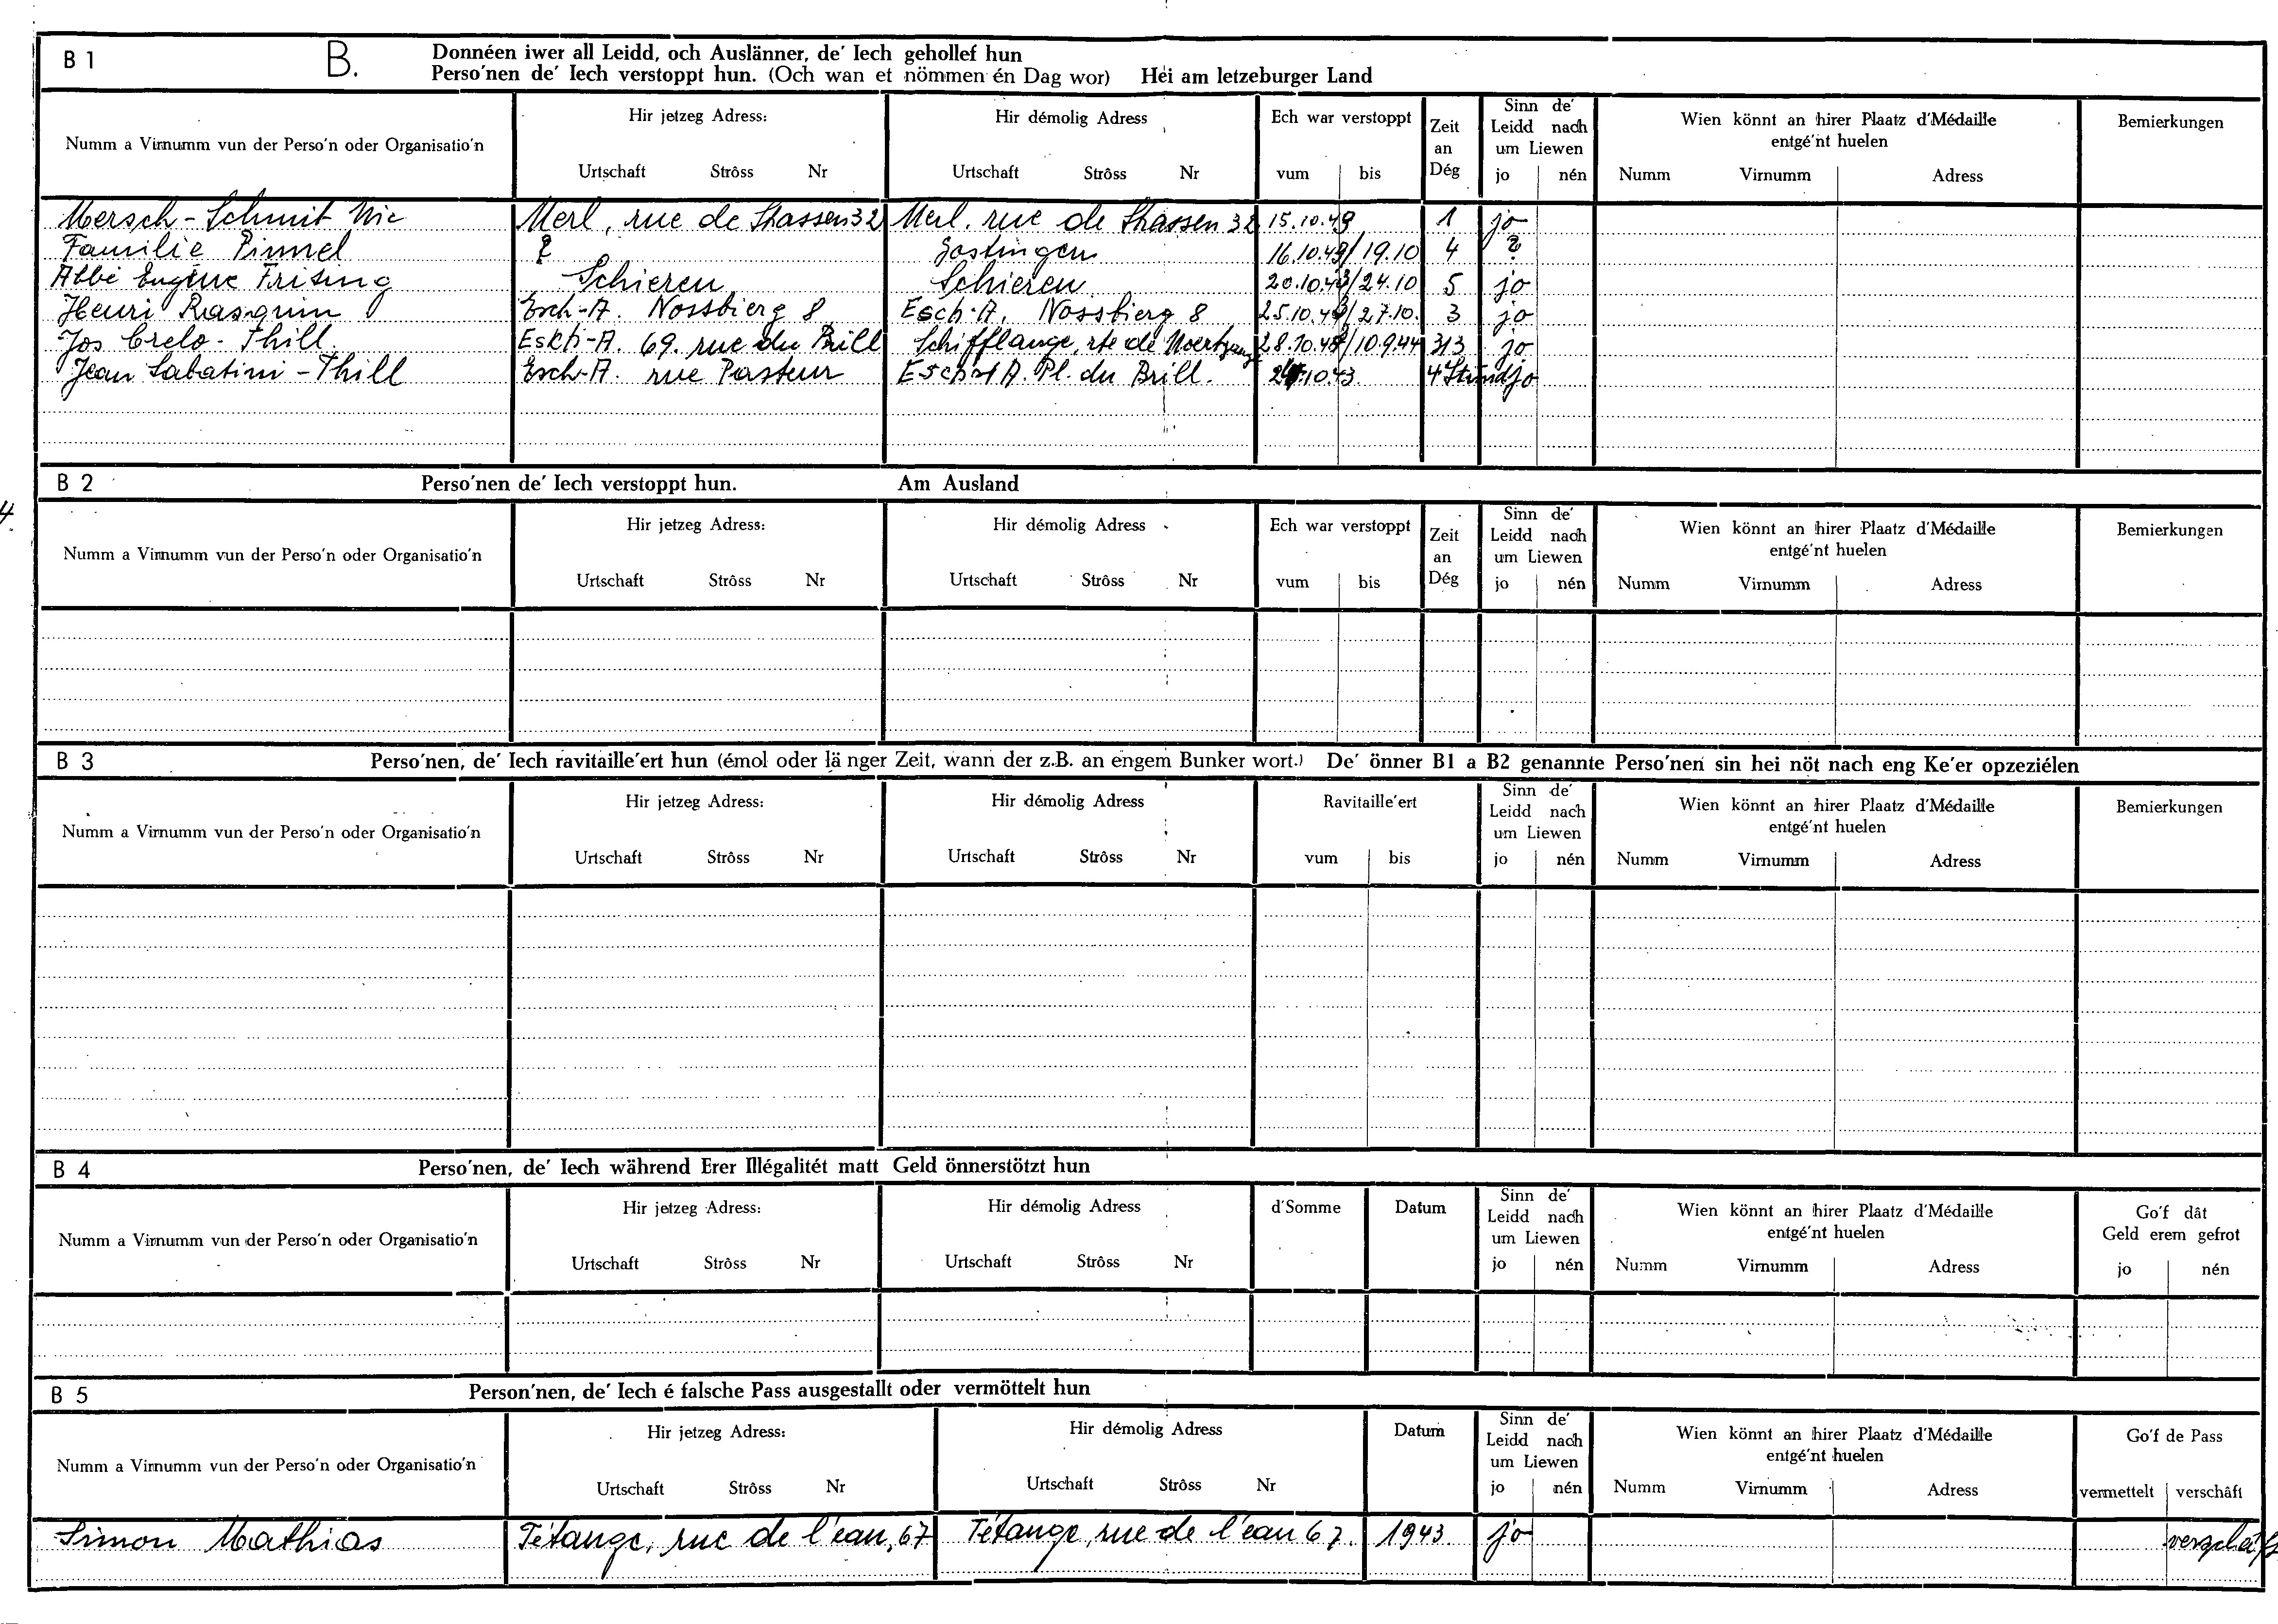 B 1 B. Donnéen iwer all Leidd, och Auslänner, de' Iech gehollef hun
Perso'nen de' Iech verstoppt hun. (Och wan et nömmen én Dag wor) Héi am letzeburger Land
Numm a Virnumm vun der Perso'n oder Organisatio'n
Hir jetzeg Adress:
Urtschaft Strôss Nr
Hir démolig Adress
Urtschaft Strôss Nr
Ech war verstoppt
vum bis
Zeit
an
Dég
Sinn de'
Leidd nach
um Liewen
jo nén
Wien könnt an hirer Plaatz d'Médaille
entgé'nt huelen
Numm Virnumm Adress
Bemierkungen
Mersch-Schmit Nic Merl, rue de Strassen 32 Merl. rue de Strassen 32 15.10.43 1 jo
Familie Pinnel ? Gostingen 16.10.43/19.10 4 ?
Abbé Eugène Frising Schieren Schieren 20.10.43/24.10 5 jo
Henri Rasquin Esch-A. Nossbierg 8 Esch-A. Nossbierg 8 25.10.43/27.10. 3 jo
Jos Crelo-Thill. Esch-A. 69. rue du Brill Schifflange, rte de Noertzange 28.10.43/10.9.44 313 jo
Jean Sabatini-Thill Esch-A. rue Pasteur Esch s/A. Pl. du Brill. 10.43. 4 Stund jo
B 2 Perso'nen de' Iech verstoppt hun. Am Ausland
4.
Numm a Virnumm vun der Perso'n oder Organisatio'n
Hir jetzeg Adress:
Urtschaft Strôss Nr
Hir démolig Adress
Urtschaft Strôss Nr
Ech war verstoppt
vum bis
Zeit
an
Dég
Sinn de'
Leidd nach
um Liewen
jo nén
Wien könnt an hirer Plaatz d'Médaille
entgé'nt huelen
Numm Virnumm Adress
Bemierkungen
B 3 Perso'nen, de' Iech ravitaille'ert hun (émol oder lä nger Zeit, wann der z.B. an engem Bunker wort.) De' önner B1 a B2 genannte Perso'nen sin hei nöt nach eng Ke'er opzeziélen
Numm a Virnumm vun der Perso'n oder Organisatio'n
Hir jetzeg Adress:
Urtschaft Strôss Nr
Hir démolig Adress
Urtschaft Strôss Nr
Ravitaille'ert
vum bis
Sinn de'
Leidd nach
um Liewen
jo nén
Wien könnt an hirer Plaatz d'Médaille
entgé'nt huelen
Numm Virnumm Adress
Bemierkungen
B 4 Perso'nen, de' Iech während Erer Illégalitét matt Geld önnerstötzt hun
Numm a Virnumm vun der Perso'n oder Organisatio'n
Hir jetzeg Adress:
Urtschaft Strôss Nr
Hir démolig Adress
Urtschaft Strôss Nr
d'Somme
Datum
Sinn de'
Leidd nach
um Liewen
jo nén
Wien könnt an hirer Plaatz d'Médaille
entgé'nt huelen
Numm Virnumm Adress
Go'f dât
Geld erem gefrot
jo nén
B 5 Person'nen, de' Iech é falsche Pass ausgestallt oder vermöttelt hun
Numm a Virnumm vun der Perso'n oder Organisatio'n
Hir jetzeg Adress:
Urtschaft Strôss Nr
Hir démolig Adress
Urtschaft Strôss Nr
Datum
Sinn de'
Leidd nach
um Liewen
jo nén
Wien könnt an hirer Plaatz d'Médaille
entgé'nt huelen
Numm Virnumm Adress
Go'f de Pass
vermettelt verschâft
Simon Mathias Tétange, rue de l'eau, 67 Tétange, rue de l'eau 67. 1943. jo verschâft